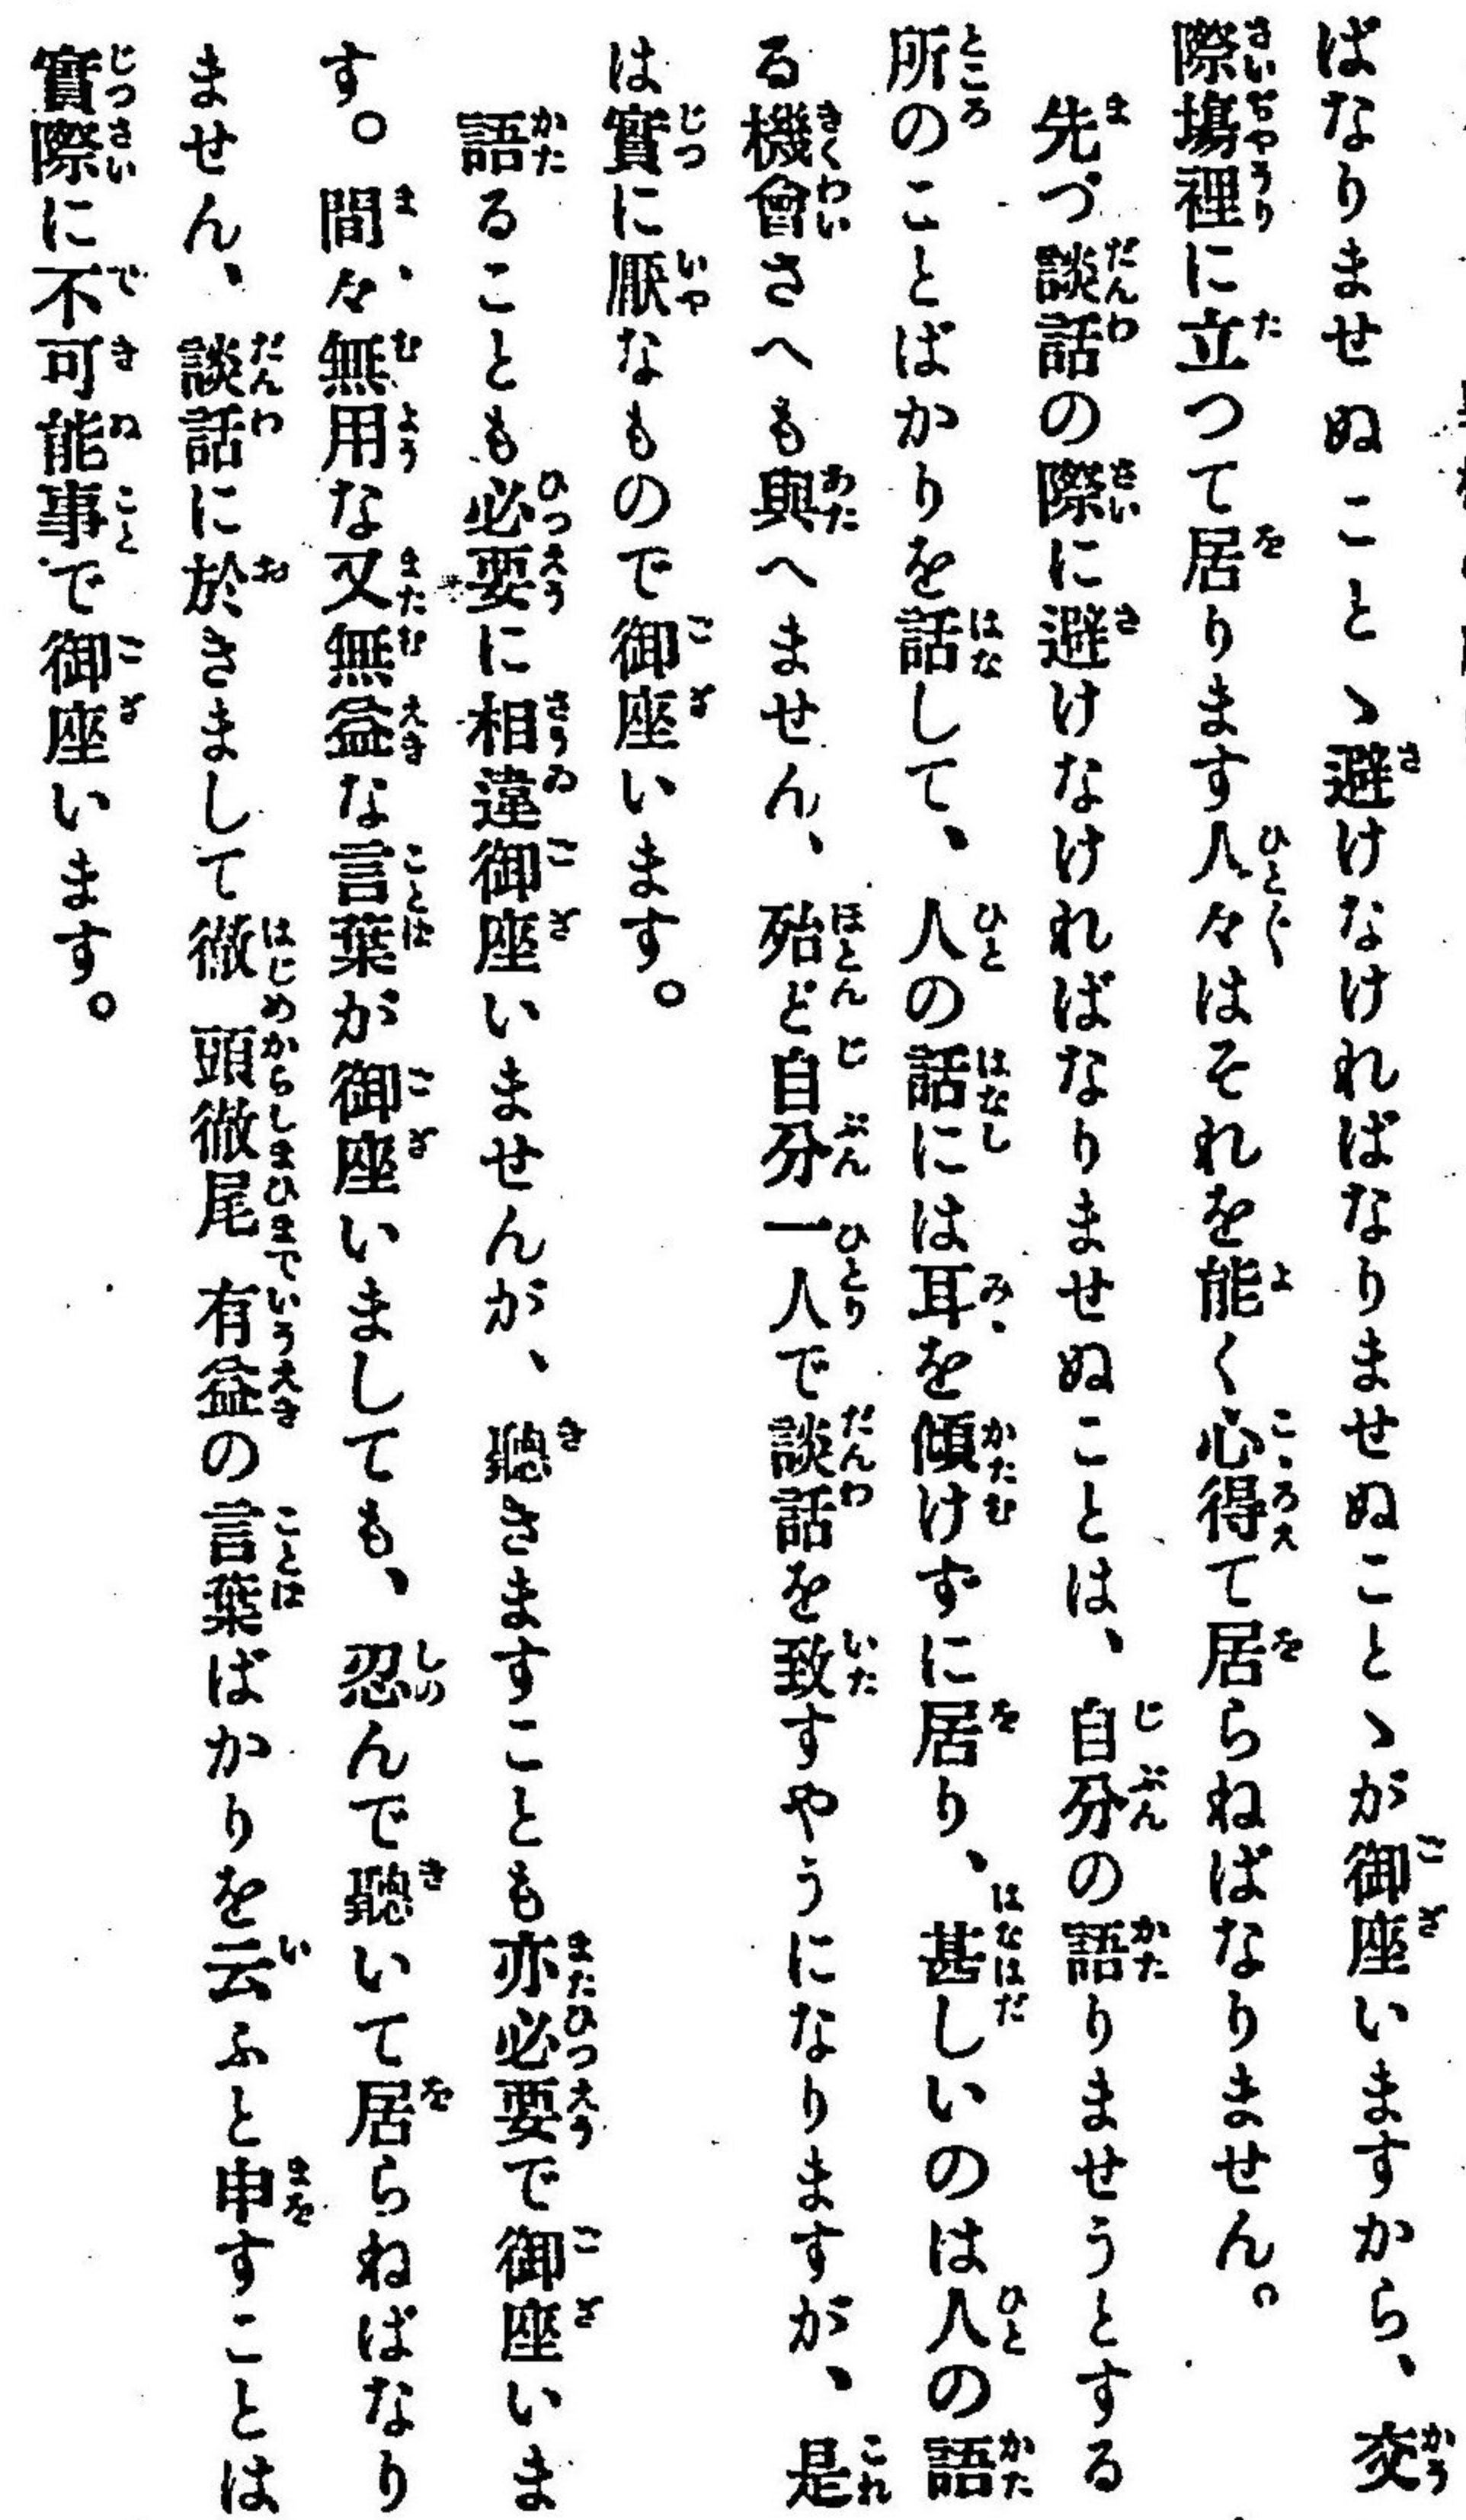 ばなりませぬことゝ避けなければなりませぬことゝが御座いますから、交
際塲裡に立つて居ります人々はそれを能く心得て居らねばなりません。
先づ談話の際に避けなければなりませぬことは、自分の語りませうとする
所のことばかりを話して、人の話には耳を傾けずに居り、甚しいのは人の語
る機會さへも與へません、殆ど自分一人で談話を致すやうになりますが、是
は實に厭なもので御座います。
語ることも必要に相違御座いませんが、聽きますことも亦必要で御座いま
す。間々無用な又無益な言葉が御座いましても、忍んで聽いて居らねばなり
ません、談話に於きまして徹頭徹尾有益の言葉ばかりを云ふと申すことは
實際に不可能事で御座います。